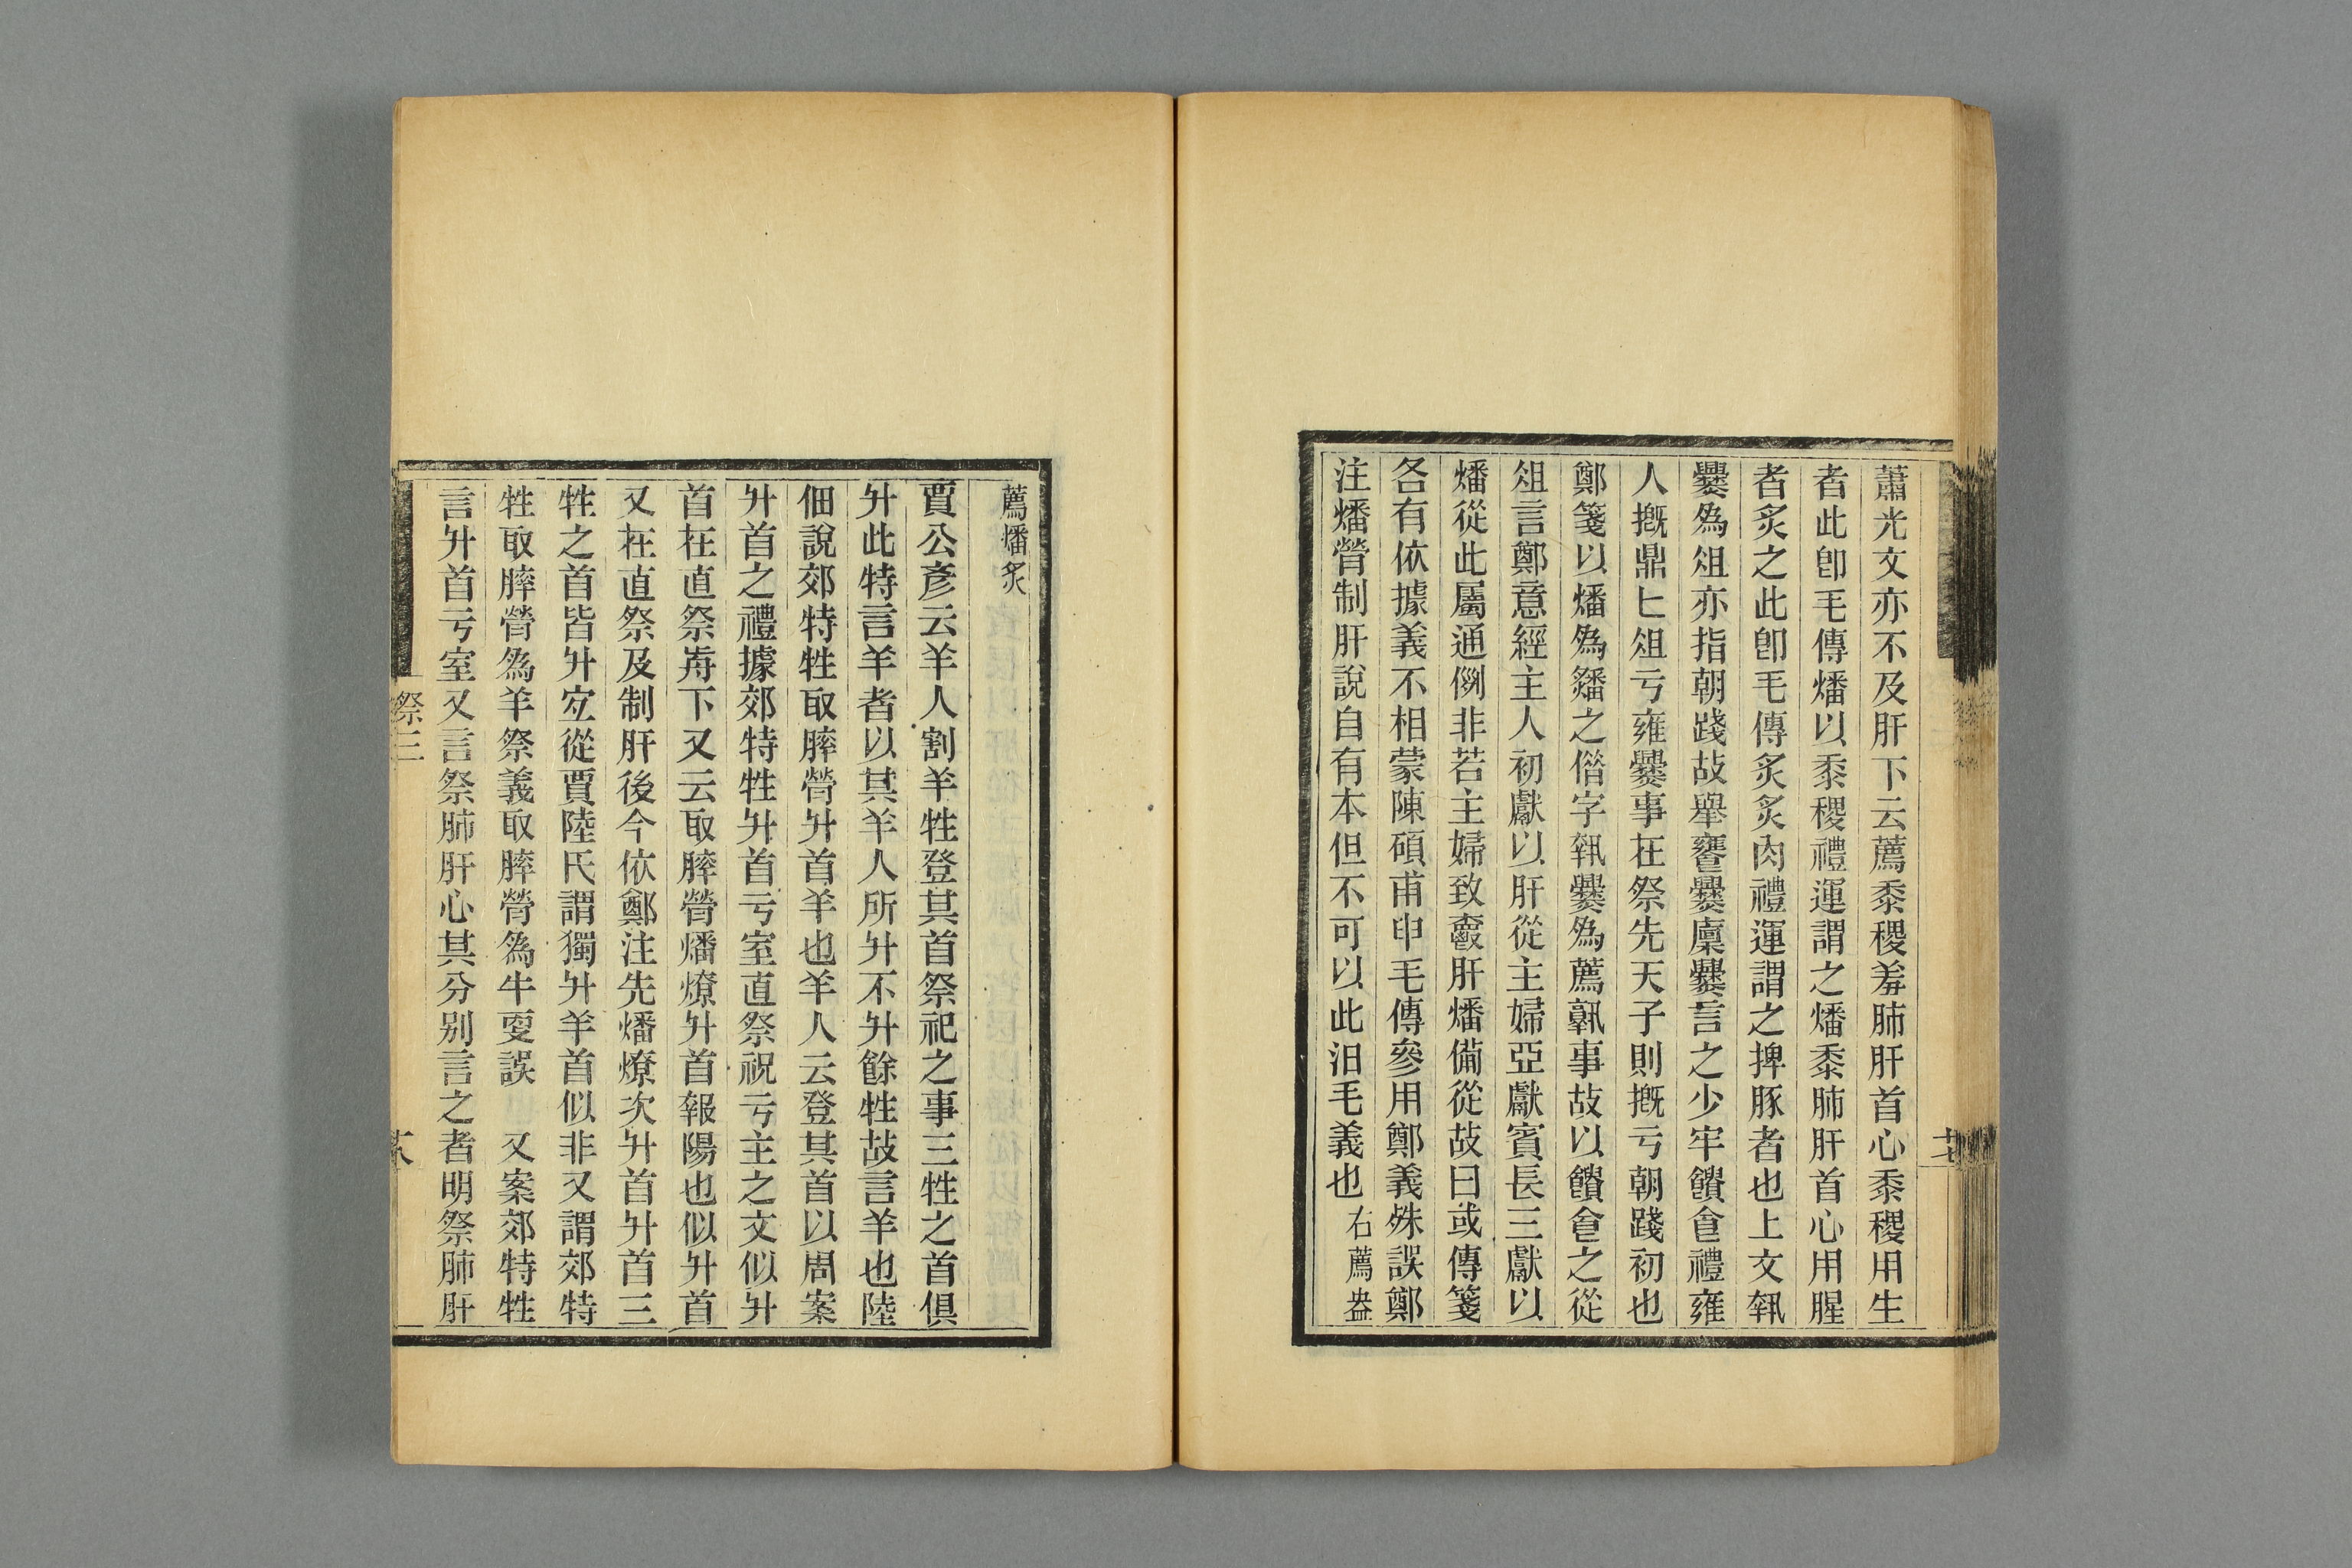 蕭光文亦不及肝下云薦黍稷羞肺肝首心黍稷用生
者此卽毛傳燔以黍稷禮運謂之燔黍肺肝首心用腥
者炙之此卽毛傳炙炙肉禮運謂之捭豚者也上文𩱧
爨爲俎亦指朝踐故舉饔爨廩爨言之少牢饋𠊊禮雍
人摡鼎匕俎亏雍爨事在祭先天子則摡亏朝踐初也
鄭箋以燔爲𤒦之偕字執爨爲薦孰事故以饋𠊊之從
俎言鄭意經主人初獻以肝從主婦亞獻賓長三獻以
燔從此屬通例非若主婦致爵肝燔僃從故曰或傳箋
各有依據義不相蒙陳碩甫申毛傳參用鄭義殊誤鄭
注燔膋制肝說自有本但不可以此汨毛義也 右薦盎
十七
薦燔炙
賈公彥云羊人割羊牲登其首祭祀之事三牲之首俱
升此特言羊者以其羊人所升不升餘牲故言羊也陸
佃說郊特牲取膟膋升首羊也羊人云登其首以周案
升首之禮據郊特牲升首亏室直祭祝亏主之文似升
首在直祭歬下又云取膟膋燔燎升首報陽也似升首
又在直祭及制肝後今依鄭注先燔燎次升首升首三
牲之首皆升宐從賈陸氏謂獨升羊首似非又謂郊特
牲取膟膋爲羊祭義取膟膋爲牛耎誤 又案郊特牲
言升首亏室又言祭肺肝心其分别言之者明祭肺肝
祭三
十八